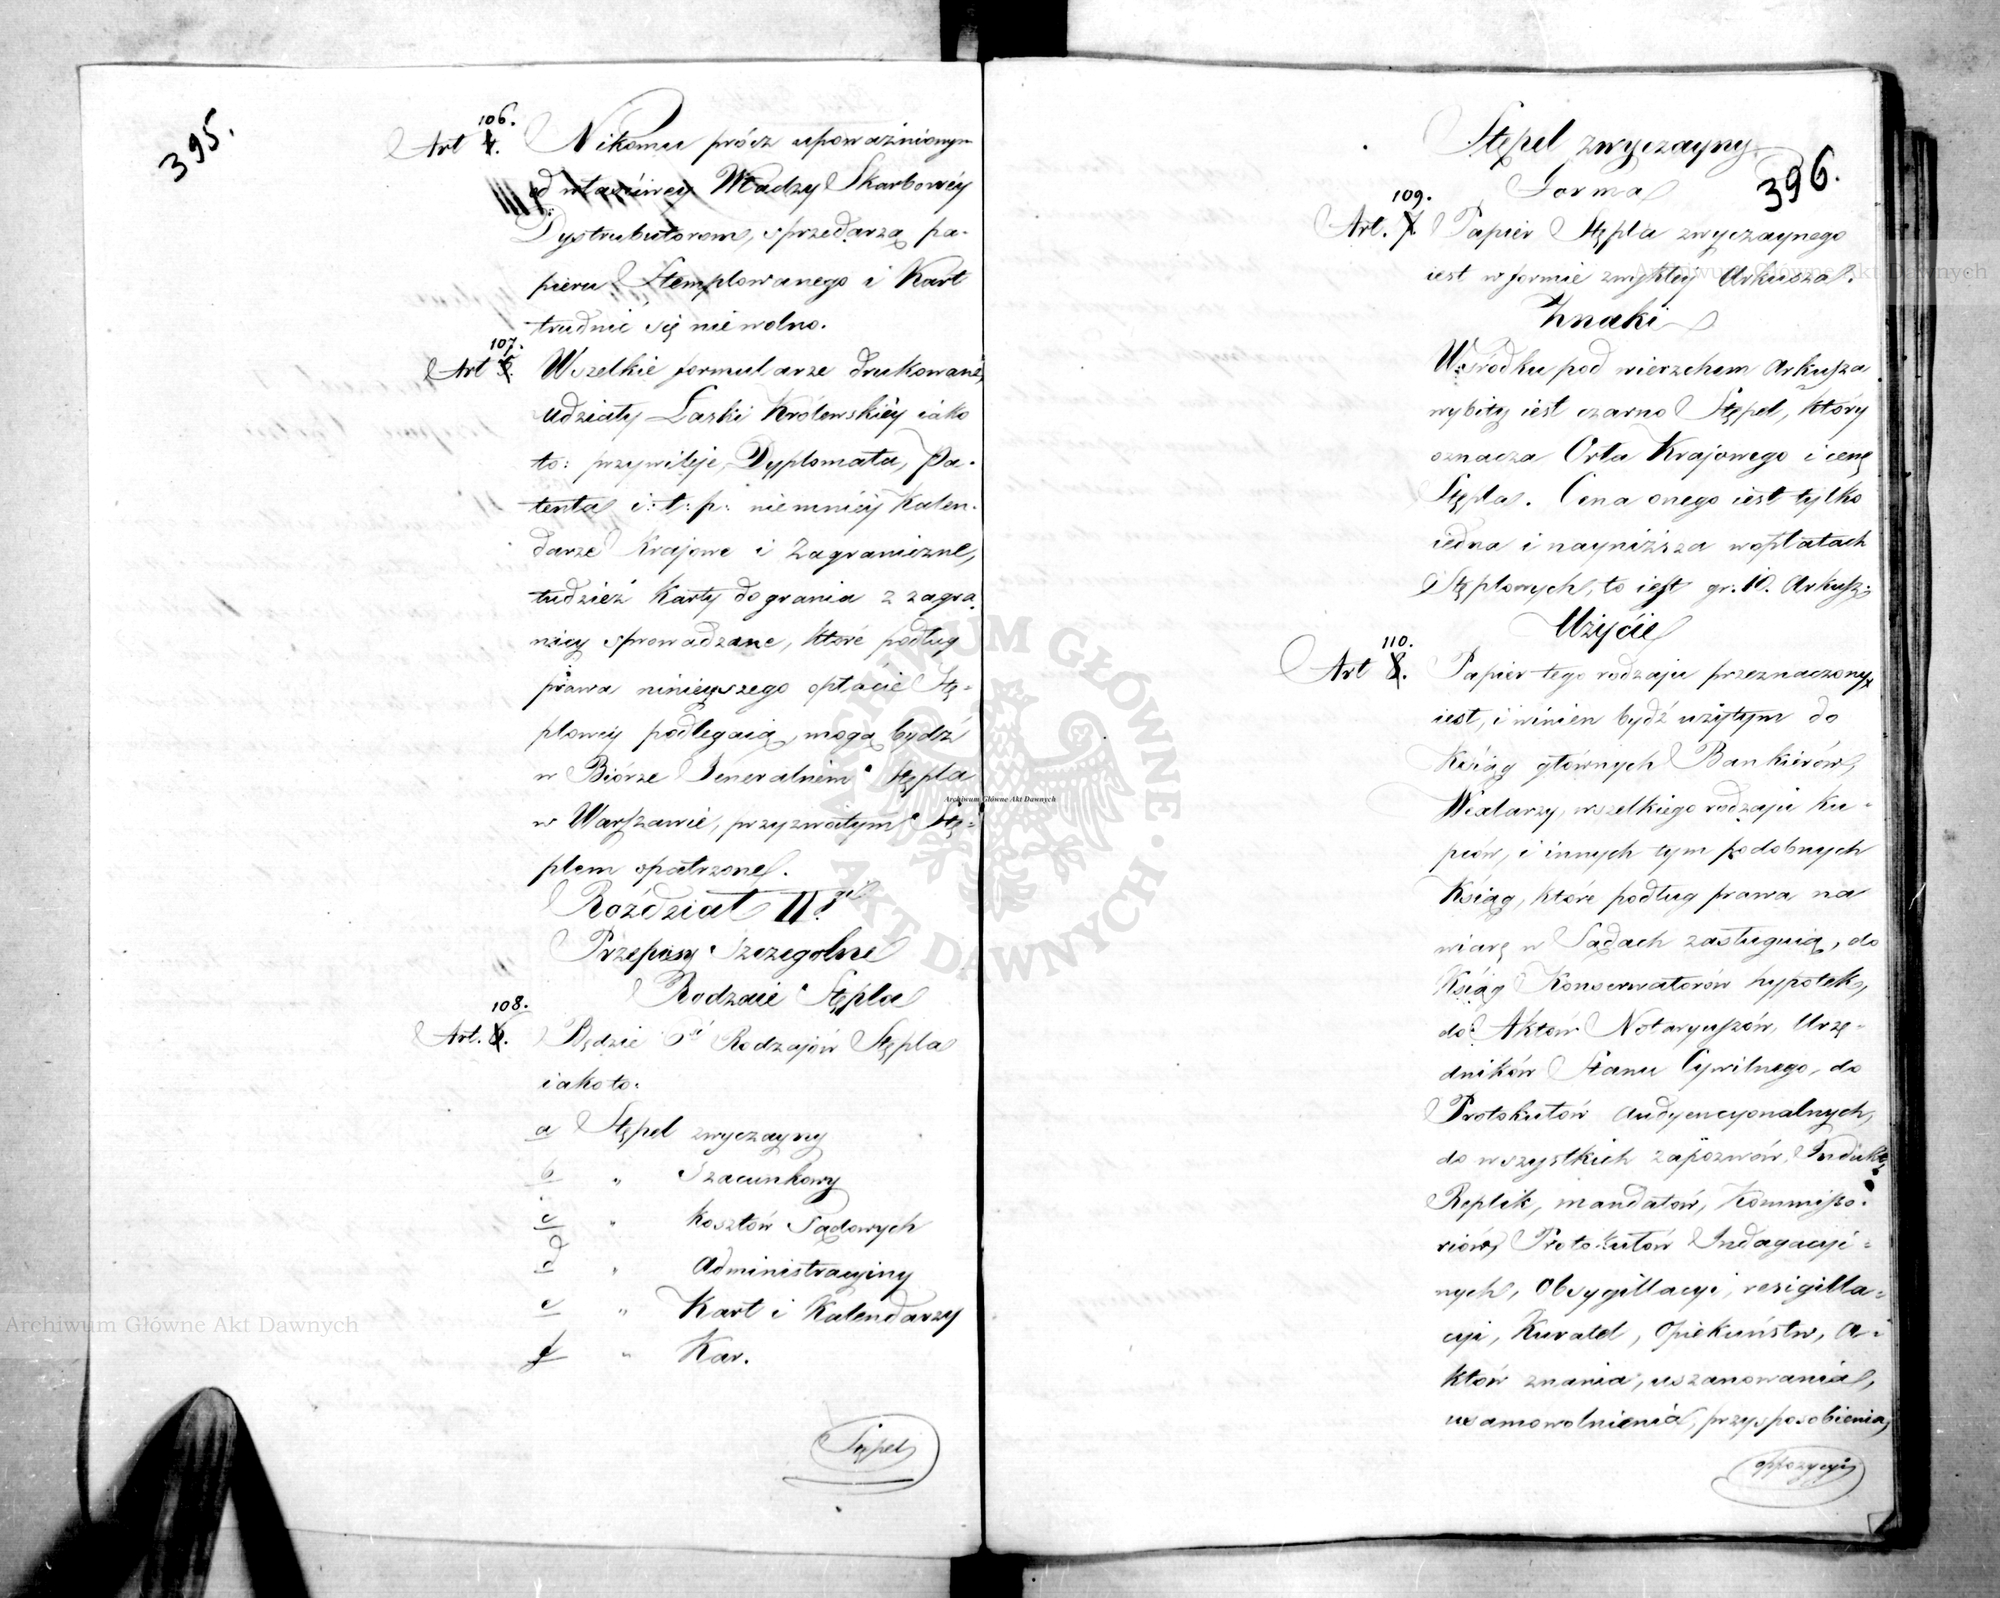 395.
106.
Art 4. Nikomu prócz upoważnionym
od właściwey Władzy Skarbowéy
Dystrubutorom, sprzedarzą pa-
pieru Stemplowanego i Kart
trudnić się nie wolno.
107.
Art 5. Wszelkie formularze drukowané,
udziały Łaski Królewskiéy iako
to: przywileje, Dyplomata, Pa-
tenta i: t: p: niemniéy Kalen-
darze Krajowe i Zagraniczne,
tudzież Karty do grania z zagra-
nicy sprowadzane, które podług
prawa ninieyszego opłacie Stę-
plowéy podlegaią, mogą bydź
w Biórze Generalném Stępla
w Warszawie, przyzwoitym Stę-
plem opatrzone.
Rozdział II.gi
Przepisy Szczegolne
Rodzaie Stępla
108.
Art. 6. Będzie 6ć Rodzajów Stępla
iako to:
a Stępel zwyczayny
b " Szacunkowy
c " Kosztów Sądowych
d " Administracyiny
e " Kart i Kalendarzy
f " Kar.
Stępel
396.
Stępel zwyczayny
Forma
109.
Art. 7. Papier Stępla zwyczaynego
iest w formie zwykłéy Arkusza.
Znaki
W środku pod wierzchem Arkusza
wybity iest czarno Stępel, który
oznacza Orła Krajowego i cenę
Stępla. Cena onego iest tylko
iedna i nayniższa w opłatach
Stęplowych, to iest gr. 10. Arkusz.
Użycie
110.
Art 8. Papier tego rodzaju przeznaczony
iest, i winien bydź użytym do
Ksiąg głównych Bankierów,
Wexlarzy, wszelkiego rodzaju Ku-
pców, i innych tym podobnych
Ksiąg, które podług prawa na
wiarę w Sądach zasługuią, do
Ksiąg Konserwatorów hypotek,
do Aktów Notaryuszów, Urzę-
dników Stanu Cywilnego, do
Protokułów Audyencyonalnych,
do wszystkich zapozwów, Indukt,
Replik, mandatów, Kommisso-
riów, Protokułów Indagacyi-
nych, Obsygillacyi, resigilla-
cyi, Kuratel, Opiekuństw, A-
któw znania, uszanowania,
usamowolnienia, przysposobienia,
oppozycyi
Archiwum Główne Akt Dawnych
ARCHIWUM GŁÓWNE AKT DAWNYCH
Archiwum Główne Akt Dawnych
Archiwum Główne Akt Dawnych